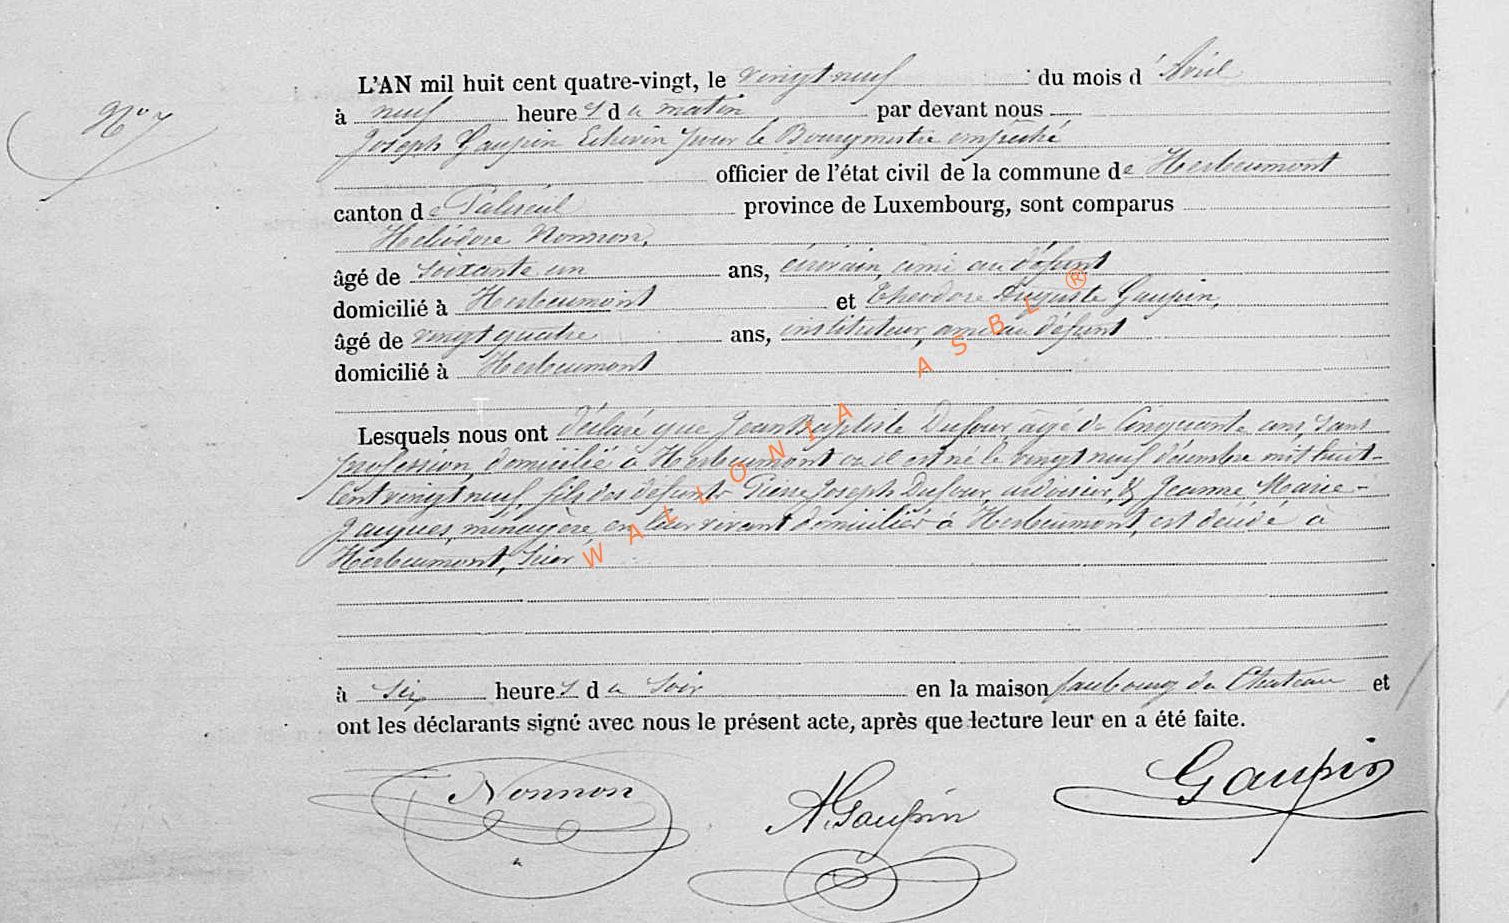 N° 7
L'AN mil huit cent quatre-vingt, le vingt neuf du mois d'Avril
à neuf heures du matin par devant nous
Joseph Gaupin Echevin pour le Bourgmestre empêché
officier de l'état civil de la commune de Herbeumont
canton de Paliseul province de Luxembourg, sont comparus
Héliodore Nonnon,
âgé de soixante un ans, écrivain, ami au défunt
domicilié à Herbeumont et Théodore Auguste Gaupin,
âgé de vingt quatre ans, instituteur, ami au défunt
domicilié à Herbeumont
Lesquels nous ont déclaré que Jean Baptiste Dufour, âgé de Cinquante ans, sans
profession, domicilié à Herbeumont où il est né le vingt neuf décembre mil huit-
Cent vingt neuf, fils des défunts Pierre Joseph Dufour, ardoisier, & Jeanne Marie-
Jacques, ménagère, en leur vivant domiciliés à Herbeumont, est décédé à
Herbeumont, hier
à six heures du soir en la maison faubourg du Chateau et
ont les déclarants signé avec nous le présent acte, après que lecture leur en a été faite.
Nonnon A. Gaupin Gaupin
WALLONIA ASBL ®